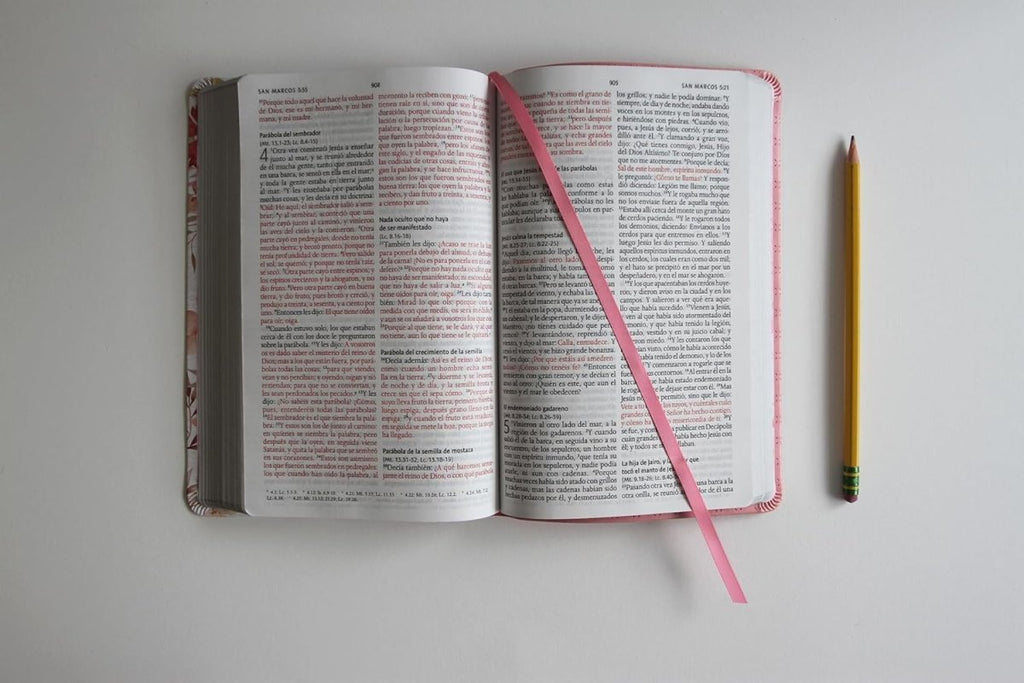 SAN MARCOS 3:35
904
³⁵Porque todo aquel que hace la voluntad
de Dios, ese es mi hermano, y mi her-
mana, y mi madre.
Parábola del sembrador
(Mt. 13.1-23; Lc. 8.4-15)
4 ¹Otra vez comenzó Jesús a enseñar
junto al mar, y se reunió alrededor
de él mucha gente, tanto que entrando
en una barca, se sentó en ella en el mar;
y toda la gente estaba en tierra junto
al mar. ²Y les enseñaba por parábolas
muchas cosas, y les decía en su doctrina:
³Oíd: He aquí, el sembrador salió a sem-
brar; ⁴y al sembrar, aconteció que una
parte cayó junto al camino, y vinieron
las aves del cielo y la comieron. ⁵Otra
parte cayó en pedregales, donde no tenía
mucha tierra; y brotó pronto, porque no
tenía profundidad de tierra. ⁶Pero salido
el sol, se quemó; y porque no tenía raíz,
se secó. ⁷Otra parte cayó entre espinos; y
los espinos crecieron y la ahogaron, y no
dio fruto. ⁸Pero otra parte cayó en buena
tierra, y dio fruto, pues brotó y creció, y
produjo a treinta, a sesenta, y a ciento por
uno. ⁹Entonces les dijo: El que tiene oídos
para oír, oiga.
¹⁰Cuando estuvo solo, los que estaban
cerca de él con los doce le preguntaron
sobre la parábola. ¹¹Y les dijo: A vosotros
os es dado saber el misterio del reino de
Dios; mas a los que están fuera, por pará-
bolas todas las cosas; ¹²para que viendo,
vean y no perciban; y oyendo, oigan y no
entiendan; para que no se conviertan, y
les sean perdonados los pecados. ¹³Y les
dijo: ¿No sabéis esta parábola? ¿Cómo,
pues, entenderéis todas las parábolas?
¹⁴El sembrador es el que siembra la pala-
bra. ¹⁵Y estos son los de junto al camino:
en quienes se siembra la palabra, pero
después que la oyen, en seguida viene
Satanás, y quita la palabra que se sembró
en sus corazones. ¹⁶Estos son asimismo
los que fueron sembrados en pedregales:
los que cuando han oído la palabra, al
momento la reciben con gozo;
tienen raíz en sí, sino que son de corta
duración, porque cuando viene la tribula-
ción o la persecución por causa de la
palabra, luego tropiezan. ¹⁸Estos son los
que fueron sembrados entre espinos: los
que oyen la palabra, ¹⁹pero los afanes de
este siglo, y el engaño de las riquezas, y
las codicias de otras cosas, entran y aho-
gan la palabra, y se hace infructuosa. ²⁰Y
estos son los que fueron sembrados en
buena tierra: los que oyen la palabra y la
reciben, y dan fruto a treinta, a sesenta, y
a ciento por uno.
Nada oculto que no haya
de ser manifestado
(Lc. 8.16-18)
²¹También les dijo: ¿Acaso se trae la luz
para ponerla debajo del almud, o debajo
de la cama? ¿No es para ponerla en el can-
delero? ²²Porque no hay nada oculto que
no haya de ser manifestado; ni escondido,
que no haya de salir a luz. ²³Si alguno
tiene oídos para oír, oiga. ²⁴Les dijo tam-
bién: Mirad lo que oís; porque con la
medida con que medís, os será medido,
y aun se os añadirá a vosotros los que oís.
²⁵Porque al que tiene, se le dará; y al que
no tiene, aun lo que tiene se le quitará.
Parábola del crecimiento de la semilla
²⁶Decía además: Así es el reino de Dios,
como cuando un hombre echa semi-
lla en la tierra; ²⁷y duerme y se levanta,
de noche y de día, y la semilla brota y
crece sin que él sepa cómo. ²⁸Porque de
suyo lleva fruto la tierra, primero hierba,
luego espiga, después grano lleno en la
espiga; ²⁹y cuando el fruto está maduro,
en seguida se mete la hoz, porque la siega
ha llegado.
Parábola de la semilla de mostaza
(Mt. 13.31-32; Lc. 13.18-19)
³⁰Decía también: ¿A qué haremos seme-
jante el reino de Dios, o con qué parábola
905
SAN MARCOS 5:21
³¹Es como el grano de
cuando se siembra en tie-
la tierra; ³²pero después
crece, y se hace la mayor
hortalizas, y echa grandes
las aves del cielo
su sombra.
las parábolas
(Mt. 13.34-35)
³³Con muchas parábolas como estas
les hablaba la palabra, conforme a lo
que podían oír.
Jesús calma la tempestad
(Mt. 8.23-27; Lc. 8.22-25)
³⁵Aquel día, cuando llegó la noche, les
dijo: Pasemos al otro lado.
y dijo al mar: Calla, enmudece.
el viento, y se hizo grande bonanza.
¿Por qué estáis así amedren-
¿Cómo no tenéis fe? ⁴¹Entonces
temieron con gran temor, y se decían el
uno al otro: ¿Quién es este, que aun el
viento y el mar le obedecen?
El endemoniado gadareno
(Mt. 8.28-34; Lc. 8.26-39)
5 ¹Vinieron al otro lado del mar, a la
región de los gadarenos. ²Y cuando
salió él de la barca, en seguida vino a su
encuentro, de los sepulcros, un hombre
con un espíritu inmundo, ³que tenía su
morada en los sepulcros, y nadie podía
atarle, ni aun con cadenas. ⁴Porque
muchas veces había sido atado con grillos
y cadenas, mas las cadenas habían sido
hechas pedazos por él, y desmenuzados
los grillos; y nadie le podía dominar. ⁵Y
siempre, de día y de noche, andaba dando
voces en los montes y en los sepulcros,
e hiriéndose con piedras. ⁶Cuando vio,
pues, a Jesús de lejos, corrió, y se arro-
dilló ante él. ⁷Y clamando a gran voz,
dijo: ¿Qué tienes conmigo, Jesús, Hijo
del Dios Altísimo? Te conjuro por Dios
que no me atormentes. ⁸Porque le decía:
Sal de este hombre, espíritu inmundo. ⁹Y
le preguntó: ¿Cómo te llamas? Y respon-
dió diciendo: Legión me llamo; porque
somos muchos. ¹⁰Y le rogaba mucho que
no los enviase fuera de aquella región.
¹¹Estaba allí cerca del monte un gran hato
de cerdos paciendo. ¹²Y le rogaron todos
los demonios, diciendo: Envíanos a los
cerdos para que entremos en ellos. ¹³Y
luego Jesús les dio permiso. Y saliendo
aquellos espíritus inmundos, entraron en
los cerdos, los cuales eran como dos mil;
y el hato se precipitó en el mar por un
despeñadero, y en el mar se ahogaron.
¹⁴Y los que apacentaban los cerdos huye-
ron, y dieron aviso en la ciudad y en los
campos. Y salieron a ver qué era aque-
llo que había sucedido. ¹⁵Vienen a Jesús,
y ven al que había sido atormentado del
demonio, y que había tenido la legión,
sentado, vestido y en su juicio cabal; y
tuvieron miedo. ¹⁶Y les contaron los que
lo habían visto, cómo le había acontecido
al que había tenido el demonio, y lo de los
cerdos. ¹⁷Y comenzaron a rogarle que se
fuera de sus contornos. ¹⁸Al entrar él en la
barca, el que había estado endemoniado
le rogaba que le dejase estar con él. ¹⁹Mas
Jesús no se lo permitió, sino que le dijo:
Vete a tu casa, a los tuyos, y cuéntales cuán
grandes cosas el Señor ha hecho contigo,
y cómo ha tenido misericordia de ti. ²⁰Y
se fue, y comenzó a publicar en Decápolis
cuán grandes cosas había hecho Jesús con
él; y todos se maravillaban.
La hija de Jairo, y la mujer que
tocó el manto de Jesús
(Mt. 9.18-26; Lc. 8.40-56)
²¹Pasando otra vez Jesús en una barca a la
otra orilla, se reunió alrededor de él una